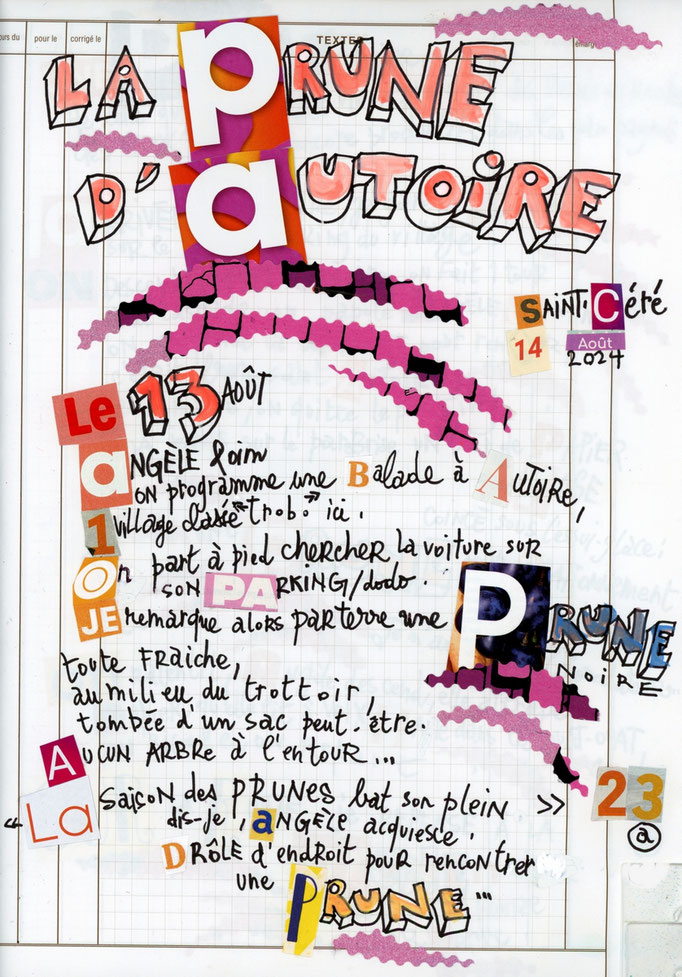 pour le
corrigé le
TEXTES
LA PRUNE
D'AUTOIRE
SAINT-Céré
14 Août
2024
Le 13 AOÛT
aNGÈLE & oim
ON programme une Balade à AUTOIRE,
1 village classé "trobo" ici.
On part à pied CHERCHER la voiture sur
SON PARKING/dodo.
JE remarque alors par terre une PRUNE
NOIRE
toute FRAICHE,
au milieu du trottoir,
tombée d'un sac peut-être.
AUCUN ARBRE à l'entour...
« La saison des PRUNES bat son plein »
dis-je, aNGÈLE acquiesce.
DRÔLE d'endroit pour rencontrer
une PRUNE...
23
a